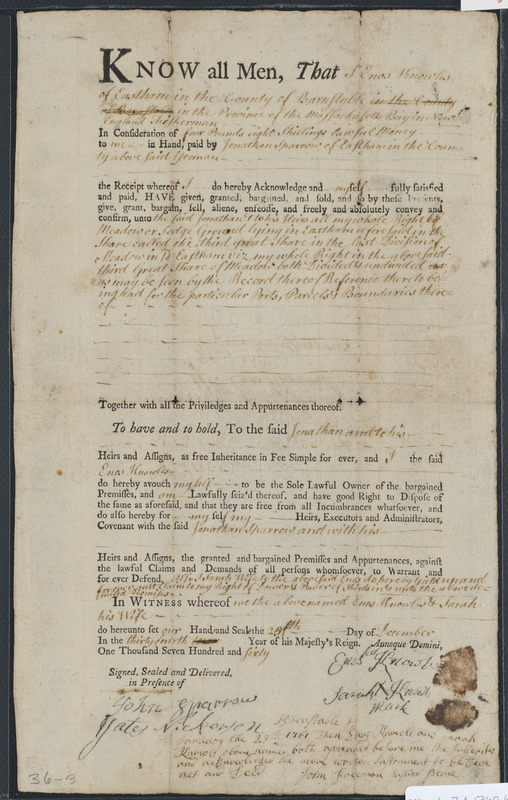 KNOW all Men, That I Enos Knowles
of Eastham in the County of Barnstable in the County
of Barnstable in the Province of the Massachusetts Bay in New
England Fisherman
In Consideration of four Pounds eight Shillings lawful Money
to me in Hand, paid by Jonathan Sparrow of Eastham in the County
above said Yeoman
the Receipt whereof I do hereby Acknowledge and myself fully satisfied
and paid, HAVE given, granted, bargained, and sold, and do by these Presents,
give, grant, bargain, sell, aliene, enfeoffe, and freely and absolutely convey and
confirm, unto the said Jonathan & to his Heirs all my whole Right of
Meadow or Sedge Ground lying in Eastham afore said in the
Share called the Third great Share in the last Division of
Meadow in Eastham viz. my whole Right in the above said
third Great Share of Meadow both Divided & undivided
as may be seen by the Record thereof Reference thereto be-
ing had for the particular Parts, Parcels & Boundaries there-
of
Together with all the Priviledges and Appurtenances thereof.
To have and to hold, To the said Jonathan and to his
Heirs and Assigns, as free Inheritance in Fee Simple for ever, and I the said
Enos Knowles
do hereby avouch myself to be the Sole Lawful Owner of the bargained
Premisses, and am Lawfully seiz'd thereof, and have good Right to Dispose of
the same as aforesaid, and that they are free from all Incumbrances whatsoever, and
do also hereby for my self my Heirs, Executors and Administrators,
Covenant with the said Jonathan Sparrow and with his
Heirs and Assigns, the granted and bargained Premisses and Appurtenances, against
the lawful Claims and Demands of all persons whomsoever, to Warrant and
for ever Defend. Also I Sarah Wife to the above said Enos do hereby give up and
forever quit claim to my Right of Dower & Power of Thirds in & unto the above de-
Premises
In WITNESS whereof we the above named Enos Knowles & Sarah
his Wife
do hereunto set our Hand and Seal the Day of December
In the thirty fourth Year of his Majesty's Reign. Annoque Domini,
One Thousand Seven Hundred and sixty
Signed, Sealed and Delivered,
in Presence of
Enos Knowles
Sarah Knowles
Mark
John Sparrow
Yates Nickerson
Barnstable ss
January the 29th 1761 Then Enos Knowles and Sarah
Knowles above named both appeared before me the subscriber
and acknowledged the above Instrument to be their
act and Deed John Freeman Justice Peace
36-B